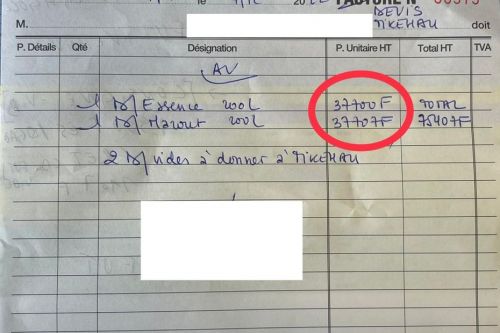 le 20 FACTURE N°
DEVIS
M. TIKEHAU doit
P. Détails Qté Désignation P. Unitaire HT Total HT TVA
AV
1 D/ Essence 200L 37700F TOTAL
1 D/ Mazout 200L 37707F 75407F
2 D/ vides à donner à TIKEHAU